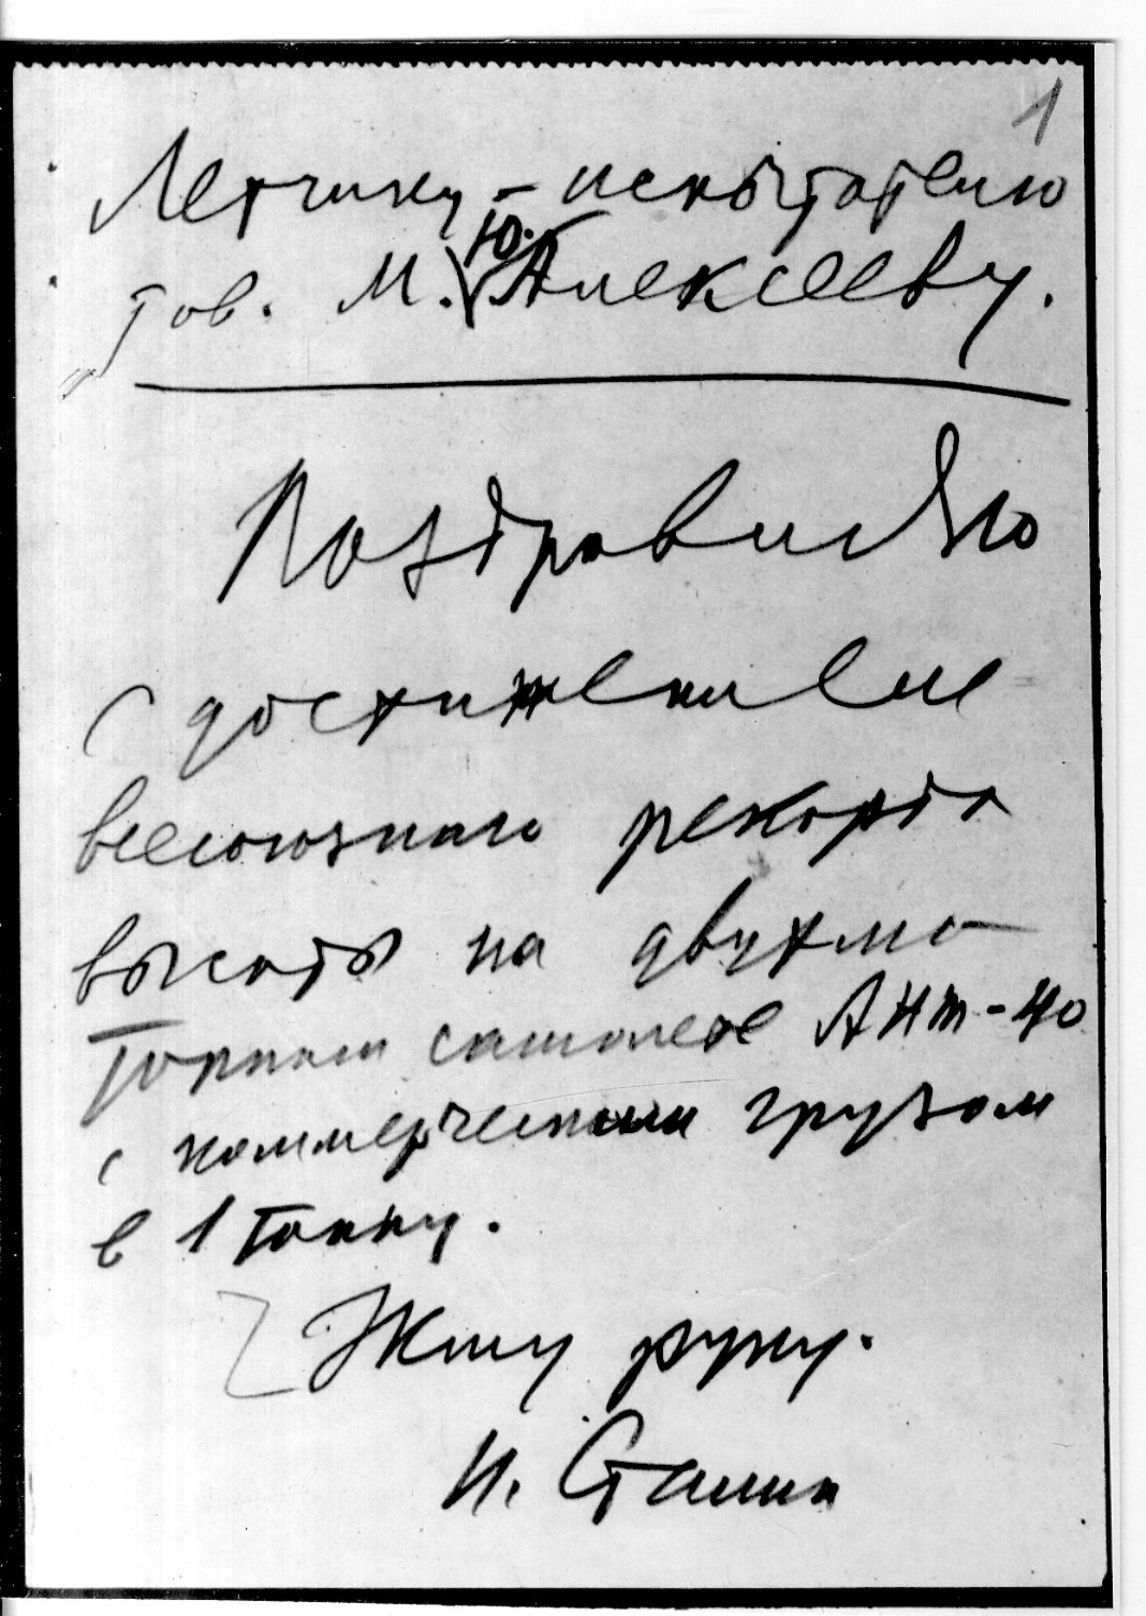 1
Летчику-испытателю
тов. М. Ю. Алексееву.
Поздравляю
с достижением
всесоюзного рекорда
высоты на двухмо-
торном самолете АНТ-40
с коммерческим грузом
в 1 тонну.
Жму руку.
И. Сталин